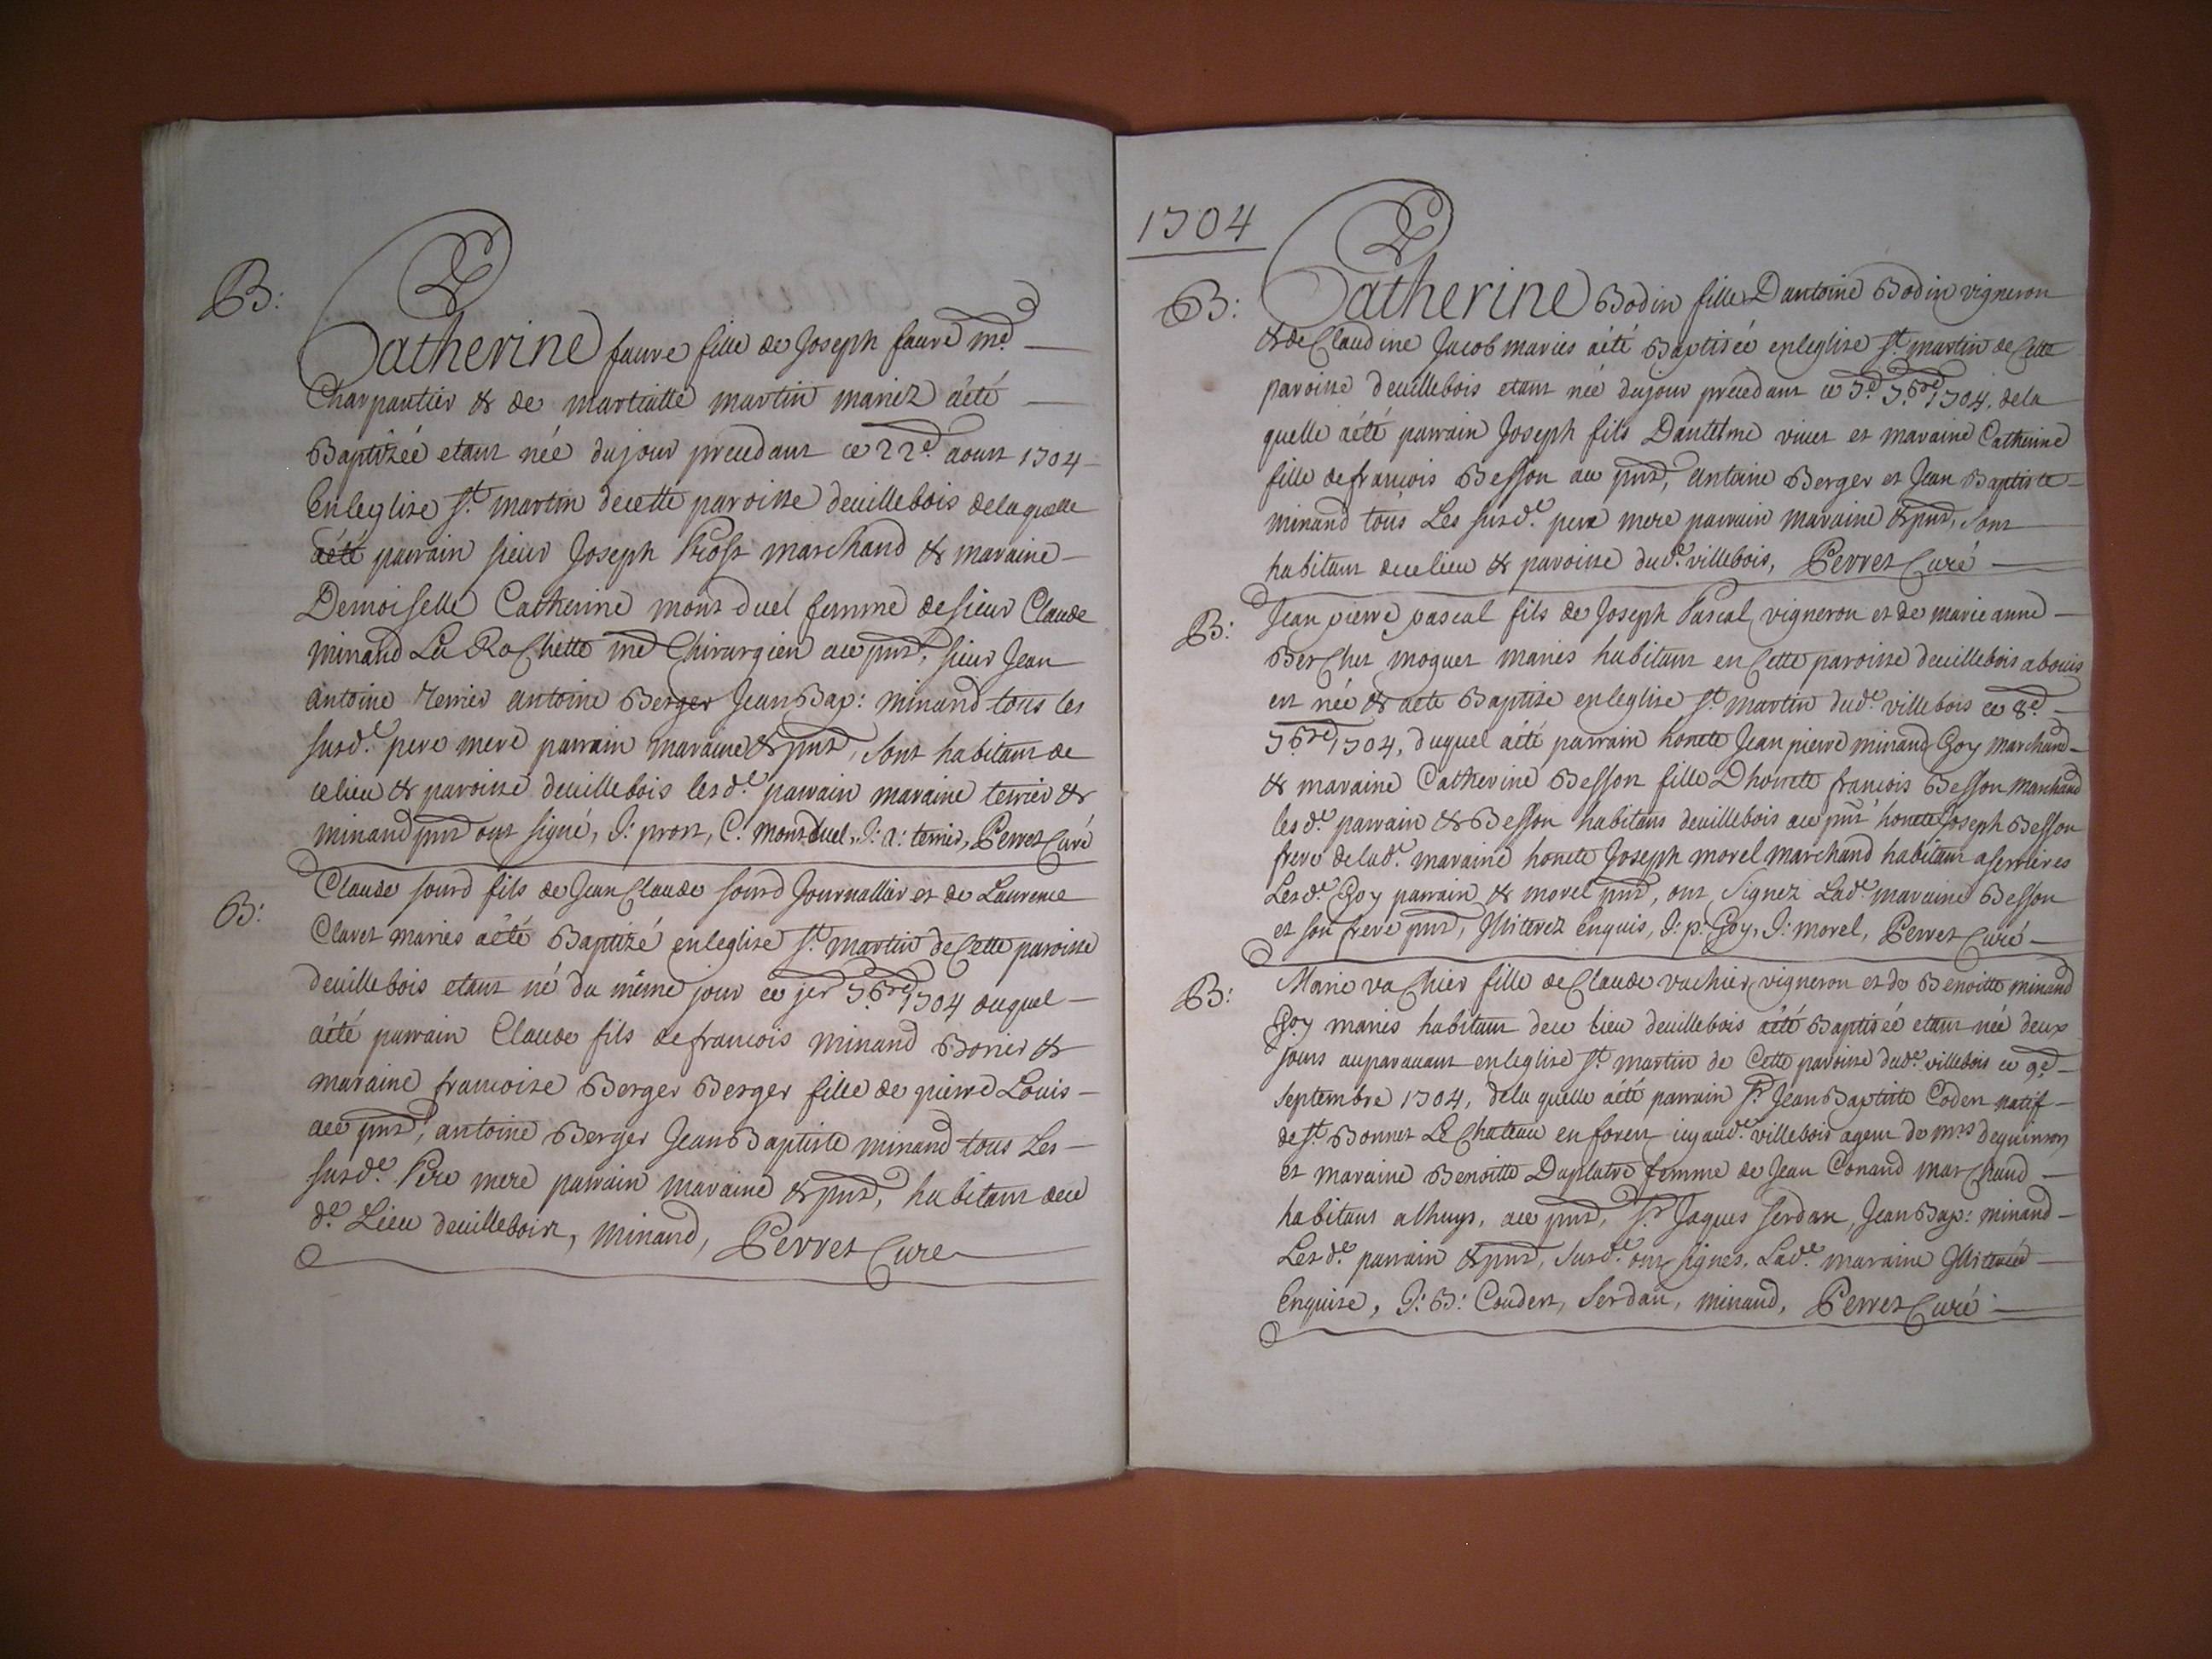 B:
Catherine faure fille de Joseph faure md
Charpantier & de martialle martin mariez aété
Baptizéé etant née dujour precedant ce 22e. aoust 1704
Enleglise St. martin decette paroisse deuillebois delaquelle
aété parrain sieur Joseph Prost marchand & maraine
Demoiselle Catherine montduel femme desieur Claude
minand La RoChette me Chirurgien ace pnts, sieur Jean
antoine terrier antoine Berger JeanBap: minand tous les
susd.e pere mere parrain maraine & pnts, sont habitant de
celieu & paroisse deuillebois lesd.e parrain maraine terrier &
minand pnts ont signé, J: prost, C: montduel, J: a: terrier, Perret Curé
B:
Claude sourd fils de Jean Claude sourd Journallier et de Laurence
Claret mariés aété Baptizé enleglise St. martin de Cette paroisse
deuillebois etant né du même jour ce jer 7bre 1704 duquel
aété parrain Claude fils defrancois minand Borier &
maraine francoise Berger Berger fille de pierre Louis
ace pnts, antoine Berger JeanBaptiste minand tous Les
susd.e Pere mere parrain maraine & pnts, habitant dece
d.e Lieu deuillebois, minand, Perret Cure
1704
B:
Catherine Bodin fille Dantoine Bodin vigneron
& de Claudine Jacob mariés aété Baptiséé enleglise St. martin de Cette
paroisse deuillebois etant née dujour precedant ce 7e. 7bre 1704, dela
quelle aété parrain Joseph fils Dantelme viuet et maraine Catherine
fille defrancois Besson ace pnts, antoine Berger et Jean Baptiste
minand tous Les susd.e pere mere parrain maraine & pnts, sont
habitant decelieu & paroisse dud.e villebois, Perret Curé
B:
Jean pierre pascal fils de Joseph Pascal vigneron et de marie anne
BerChet moguet mariés habitant en Cette paroisse deuillebois abouis
est née & aete Baptise enleglise St. martin dud.e villebois ce 8e.
7bre 1704, duquel aété parrain honete Jean pierre minand Goy marchand
& maraine Catherine Besson fille Dhonete francois Besson marchand
lesd.e parrain & Besson habitans deuillebois ace pnts honete Joseph Besson
frere delad.e maraine honete Joseph morel marchand habitant aserrieres
Lesd.e Goy parrain & morel pnts, ont signez Lad.e maraine Besson
et son frere pnts, Illiterez Enquis, J: p: Goy, J: morel, Perret Curé
B:
Marie vaChier fille de Claude vachier vigneron et de Benoitte minand
Goy mariés habitant dece lieu deuillebois aété Baptiséé etant née deux
jours auparauant enleglise St. martin de Cette paroisse dud.e villebois ce 9e.
septembre 1704, dela quelle aété parrain Sr. JeanBaptiste Codert natif
de St. Bonnet Le Chateau en forest icy aud.e villebois agent de mrs dequinson
et maraine Benoitte Duplatre femme de Jean Conand marChand
habitans alhuys, ace pnts, Sr. Jaques serdan, JeanBap: minand
Lesd.e parrain & pnts, susd.e ont signes, Lad.e maraine Illiteréé
Enquise, J: B: Coudert, Serdan, minand, Perret Curé